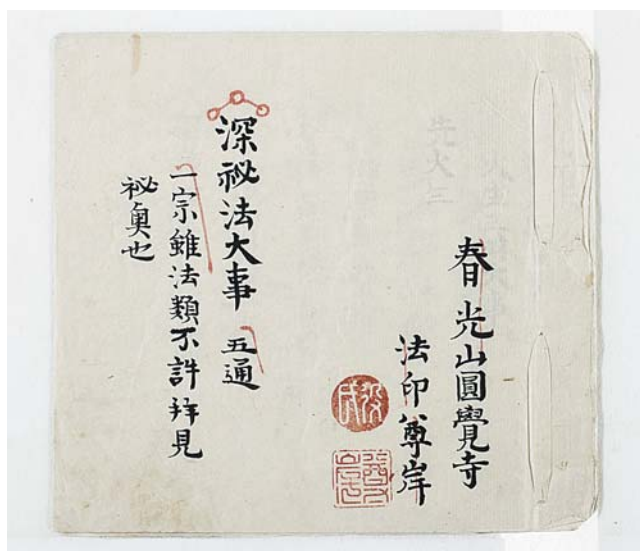 春光山圓覺寺
法印尊岸
深祕法大事 五通
一宗雖法類不許拜見
祕奧也